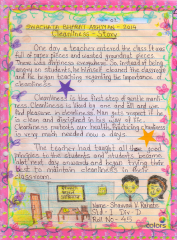 SWACHATA BHARAT ABHIYAN - 2014
Cleanliness - Story
One day a teacher entered the class. It was
full of paper pieces and wasted pieces.
There was dispose everywhere. So, instead of being
angry on students, he himself cleaned the classroom
and he began teaching regarding the importance of
cleanliness.
Cleanliness is the first step of gentle man-
Cleanliness is liked by one and all and gives
pleasure. in cleanliness. Man gets respect if he
is clean and disciplined in his way of life.
Cleanliness protects our health, Practising cleanliness
is very much needed now a days.
The teacher had taught all these good
principles to the students and students became
neat next day onwards and began trying their
best to maintain cleanliness in their
classroom.
Name- Shravani V.
Std- Div- D
Roll No- 45
colors